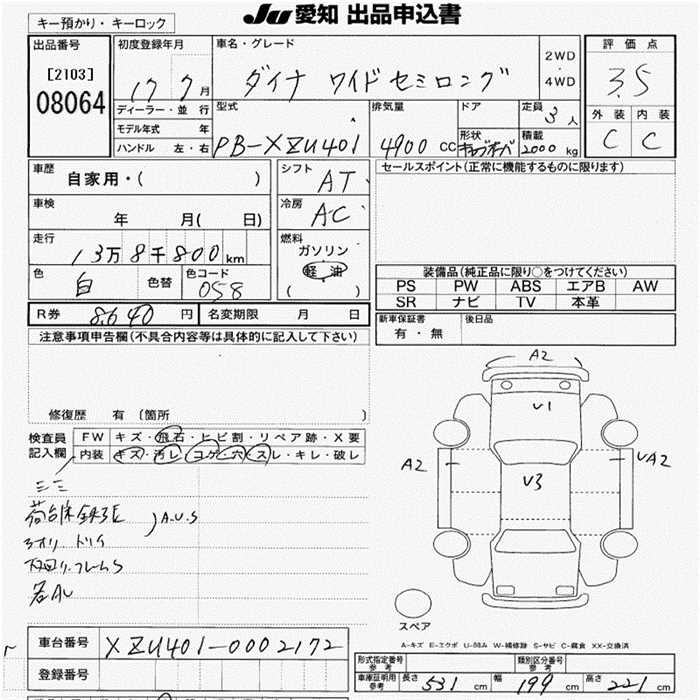 JU 愛知 出品申込書
キー預かり・キーロック
出品番号
[2103]
08064
初度登録年月
17 7月
ディーラー・並行
モデル年式 年
ハンドル 左・右
車名・グレード
ダイナ ワイドセミロング
2WD
・
4WD
型式
PB-XZU401
排気量
4900 CC
ドア
形状
定員
3人
積載
2000 kg
評価点
3.5
外装 内装
C C
車歴
自家用・( )
車検
年 月( 日)
走行
13万8千800km
色
白
色替
色コード
058
シフト
AT
冷房
AC
燃料
ガソリン
軽・油
( )
R券 8,640 円
名変期限 月 日
セールスポイント(正常に機能するものに限ります)
装備品(純正品に限り○をつけてください)
PS PW ABS エアB AW
SR ナビ TV 本革
新車保証書
有・無
後日品
注意事項申告欄(不具合内容等は具体的に記入して下さい)
修復歴 有 (箇所 )
検査員
記入欄
FW キズ・飛石・ヒビ割・リペア跡・X要
内装 キズ・汚レ・コゲ・穴・スレ・キレ・破レ
A.U.S
A2
U1
A2
U3
UA2
スペア
A-キズ E-エクボ U-凹み W-補修跡 S-サビ C-腐食 XX-交換済
車台番号 XZU401-0002172
登録番号
形式指定番号
参考
類別区分番号
参考
車庫証明用
参考
長さ 531 cm 幅 199 cm 高さ 221 cm